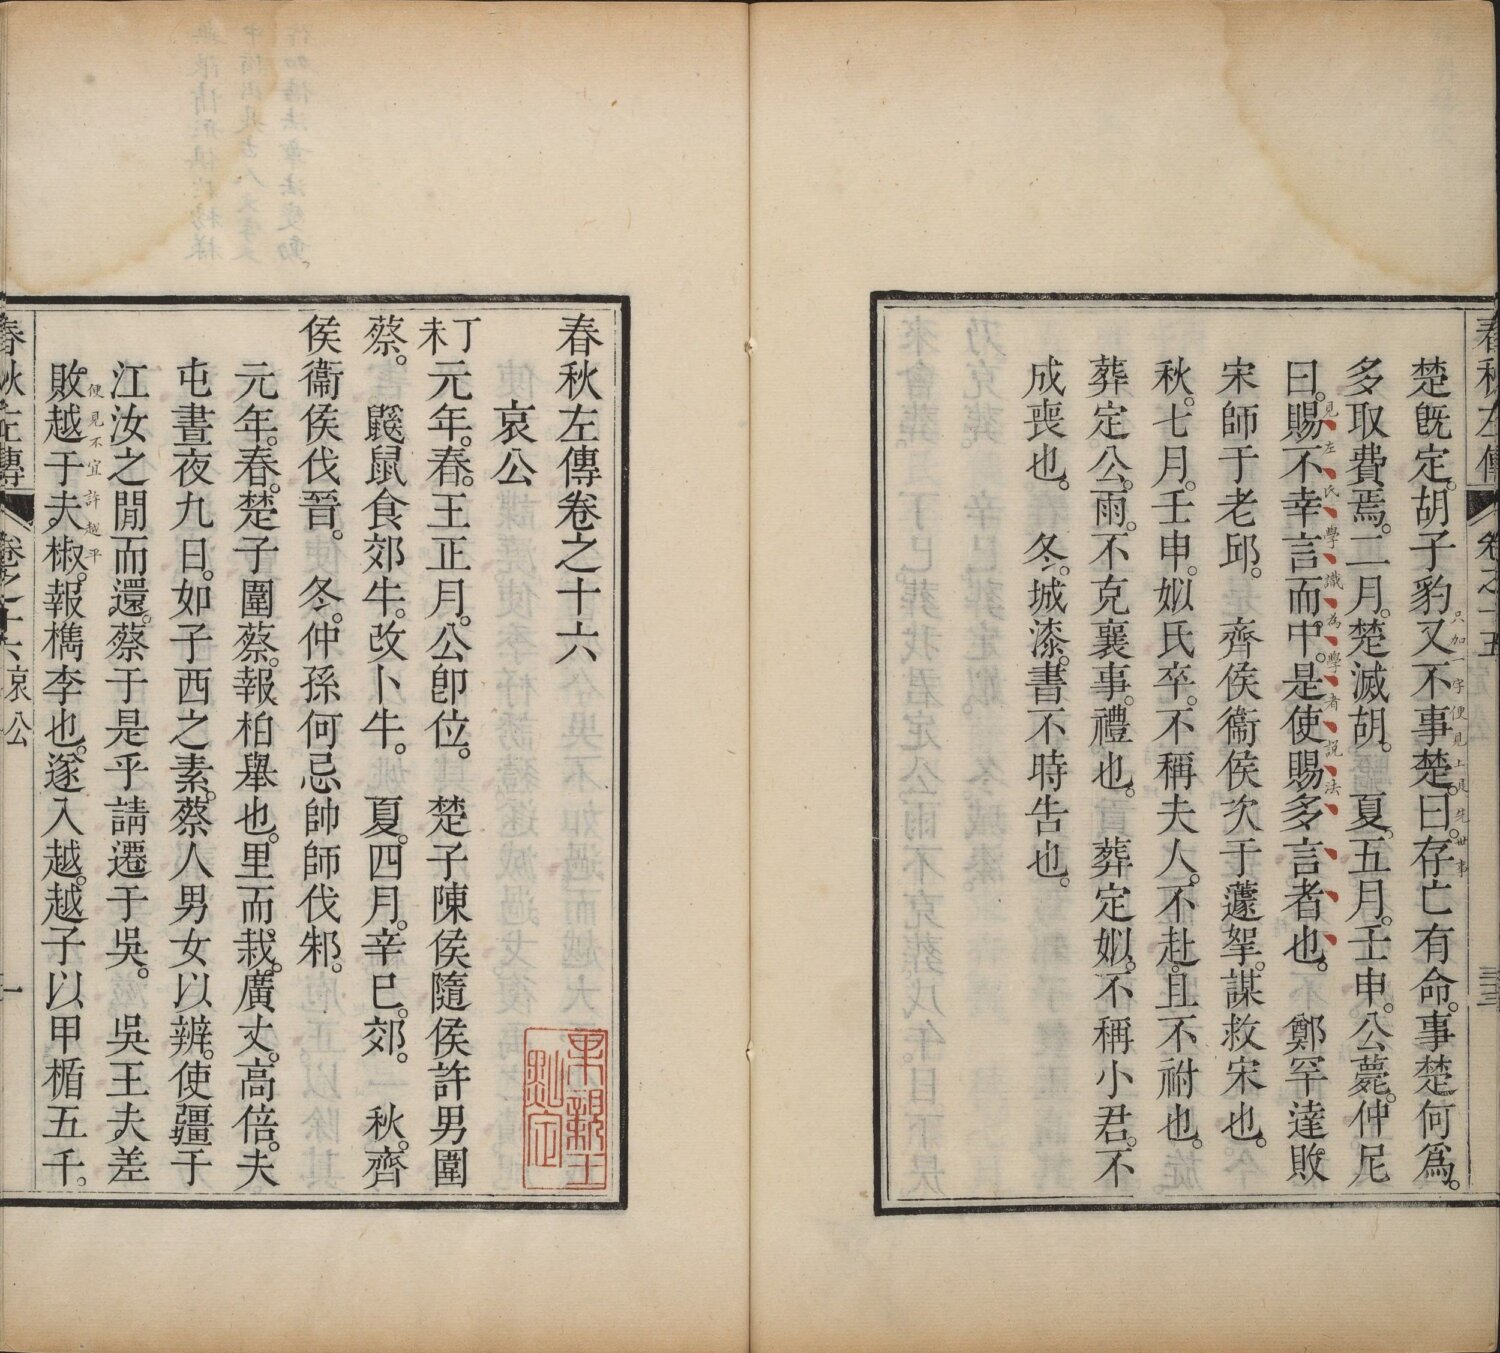 春秋左傳
卷之十五
三三
楚旣定。胡子豹又不事楚。曰。存亡有命。事楚何爲。
只加一字便見上是先世事
多取費焉。二月。楚滅胡。夏。五月。壬申。公薨。仲尼
曰。賜不幸言而中。是使賜多言者也。鄭罕達敗
見左氏學識為學者說法
宋師于老邱。齊侯衞侯次于蘧挐。謀救宋也。
秋。七月。壬申。姒氏卒。不稱夫人。不赴。且不祔也。
葬定公。雨。不克襄事。禮也。葬定姒。不稱小君。不
成喪也。冬。城漆。書不時告也。
春秋左傳卷之十六
哀公
丁未元年。春。王正月。公卽位。楚子陳侯隨侯許男圍
蔡。鼷鼠食郊牛。改卜牛。夏。四月。辛巳。郊。秋。齊
侯衞侯伐晉。冬。仲孫何忌帥師伐邾。
元年。春。楚子圍蔡。報柏舉也。里而栽。廣丈。高倍。夫
屯晝夜九日。如子西之素。蔡人男女以辨。使疆于
江汝之閒而還。蔡于是乎請遷于吳。吳王夫差
便見不宜許越平
敗越于夫椒。報檇李也。遂入越。越子以甲楯五千。
春秋左傳
卷之十六
哀公
一